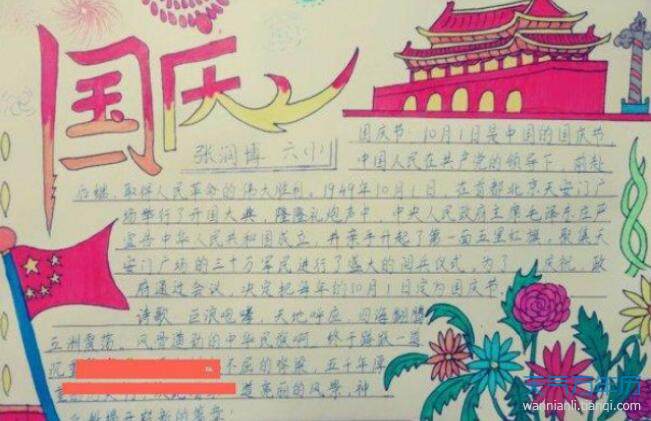 国庆
张润博 六(1)
国庆节:10月1日是中国的国庆节
中国人民在共产党的领导下,前赴
后继,取得人民革命的伟大胜利。1949年10月1日,在首都北京天安门广
场举行了开国大典,隆隆礼炮声中,中央人民政府主席毛泽东庄严
宣告中华人民共和国成立,并亲手升起了第一面五星红旗。聚集天
安门广场的三十万军民进行了盛大的阅兵仪式。为了 庆祝,政
府通过会议,决定把每年的10月1日定为国庆节。
诗歌:巨浪咆哮,天地呼应,四海翻腾
五洲震荡,风雷涌动的中华民族啊,终于踏破一道
沉重 不屈的脊梁,五千年
道亮丽的风景,神
新的篇章!
wannianli.uanqi.com